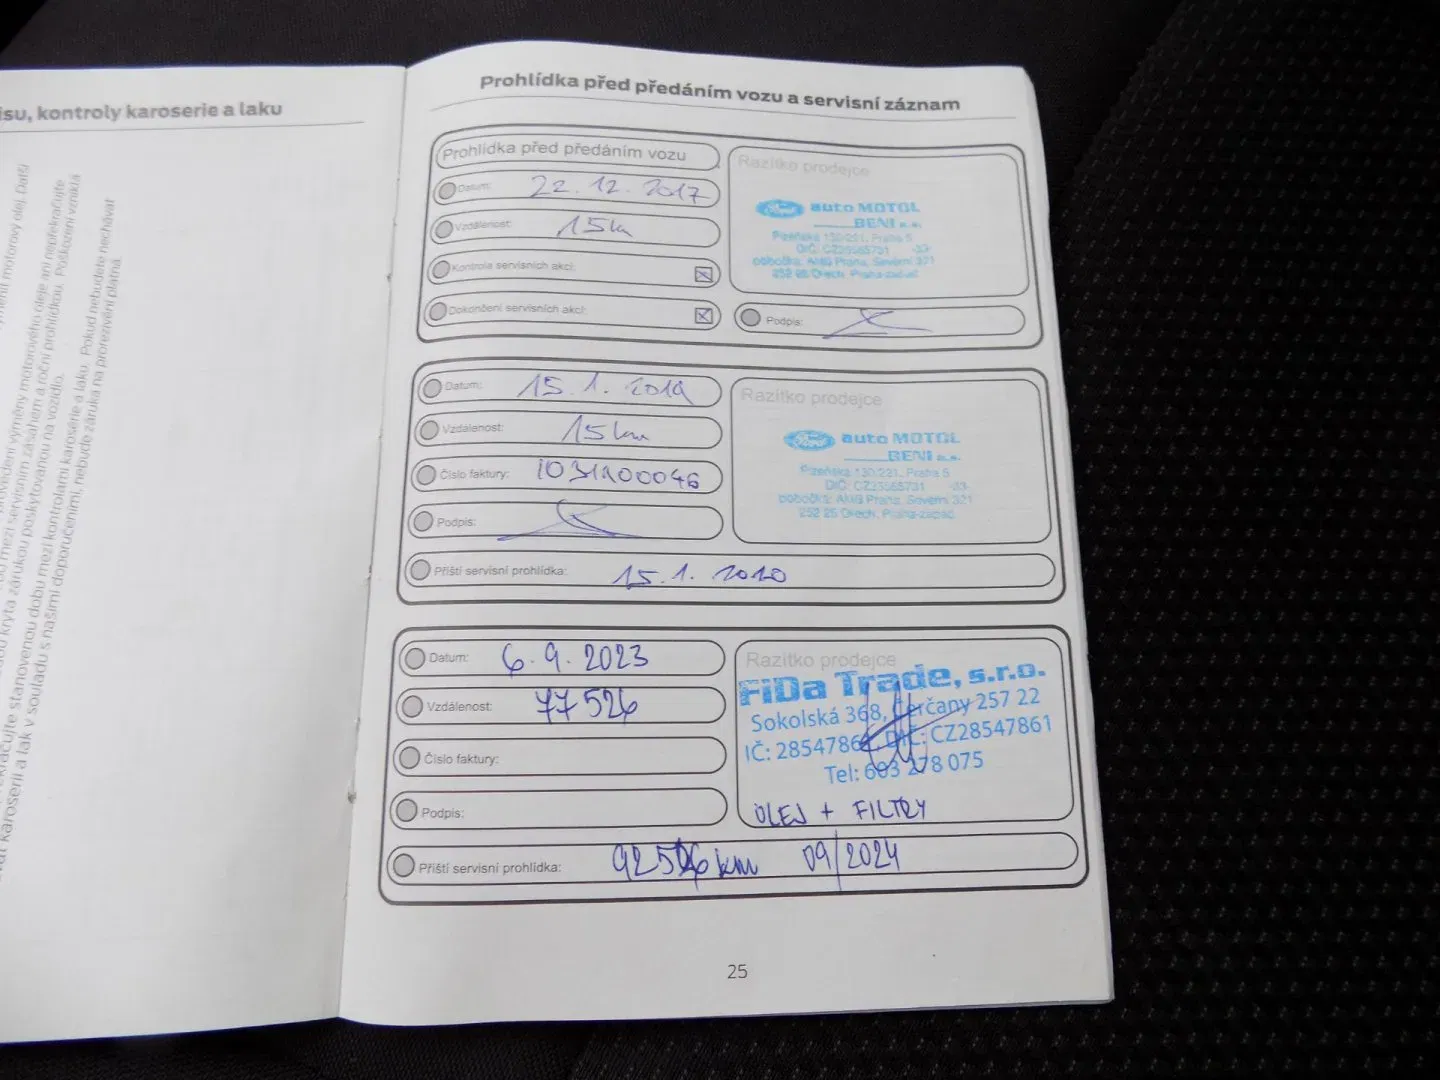 isu, kontroly karoserie a laku
Prohlídka před předáním vozu a servisní záznam
Prohlídka před předáním vozu
Datum: 22. 12. 2017
Vzdálenost: 15 km
Kontrola servisních akcí:
Dokončení servisních akcí:
Razítko prodejce
Ford auto MOTOL
BENI a.s.
Plzeňská 130/221, Praha 5
DIČ: CZ23565731 -33-
pobočka: AMB Praha, Severní 321
252 25 Ořech, Praha-západ
Podpis:
Datum: 15. 1. 2019
Vzdálenost: 15 km
Číslo faktury: 1031200046
Podpis:
Razítko prodejce
Ford auto MOTOL
BENI a.s.
Plzeňská 130/221, Praha 5
DIČ: CZ23565731 -33-
pobočka: AMB Praha, Severní 321
252 25 Ořech, Praha-západ
Příští servisní prohlídka: 15. 1. 2020
Datum: 6. 9. 2023
Vzdálenost: 77 526
Číslo faktury:
Podpis:
Razítko prodejce
FiDa Trade, s.r.o.
Sokolská 368, Čerčany 257 22
IČ: 28547861, DIČ: CZ28547861
Tel: 603 278 075
OLEJ + FILTRY
Příští servisní prohlídka: 92526 km 09/2024
25